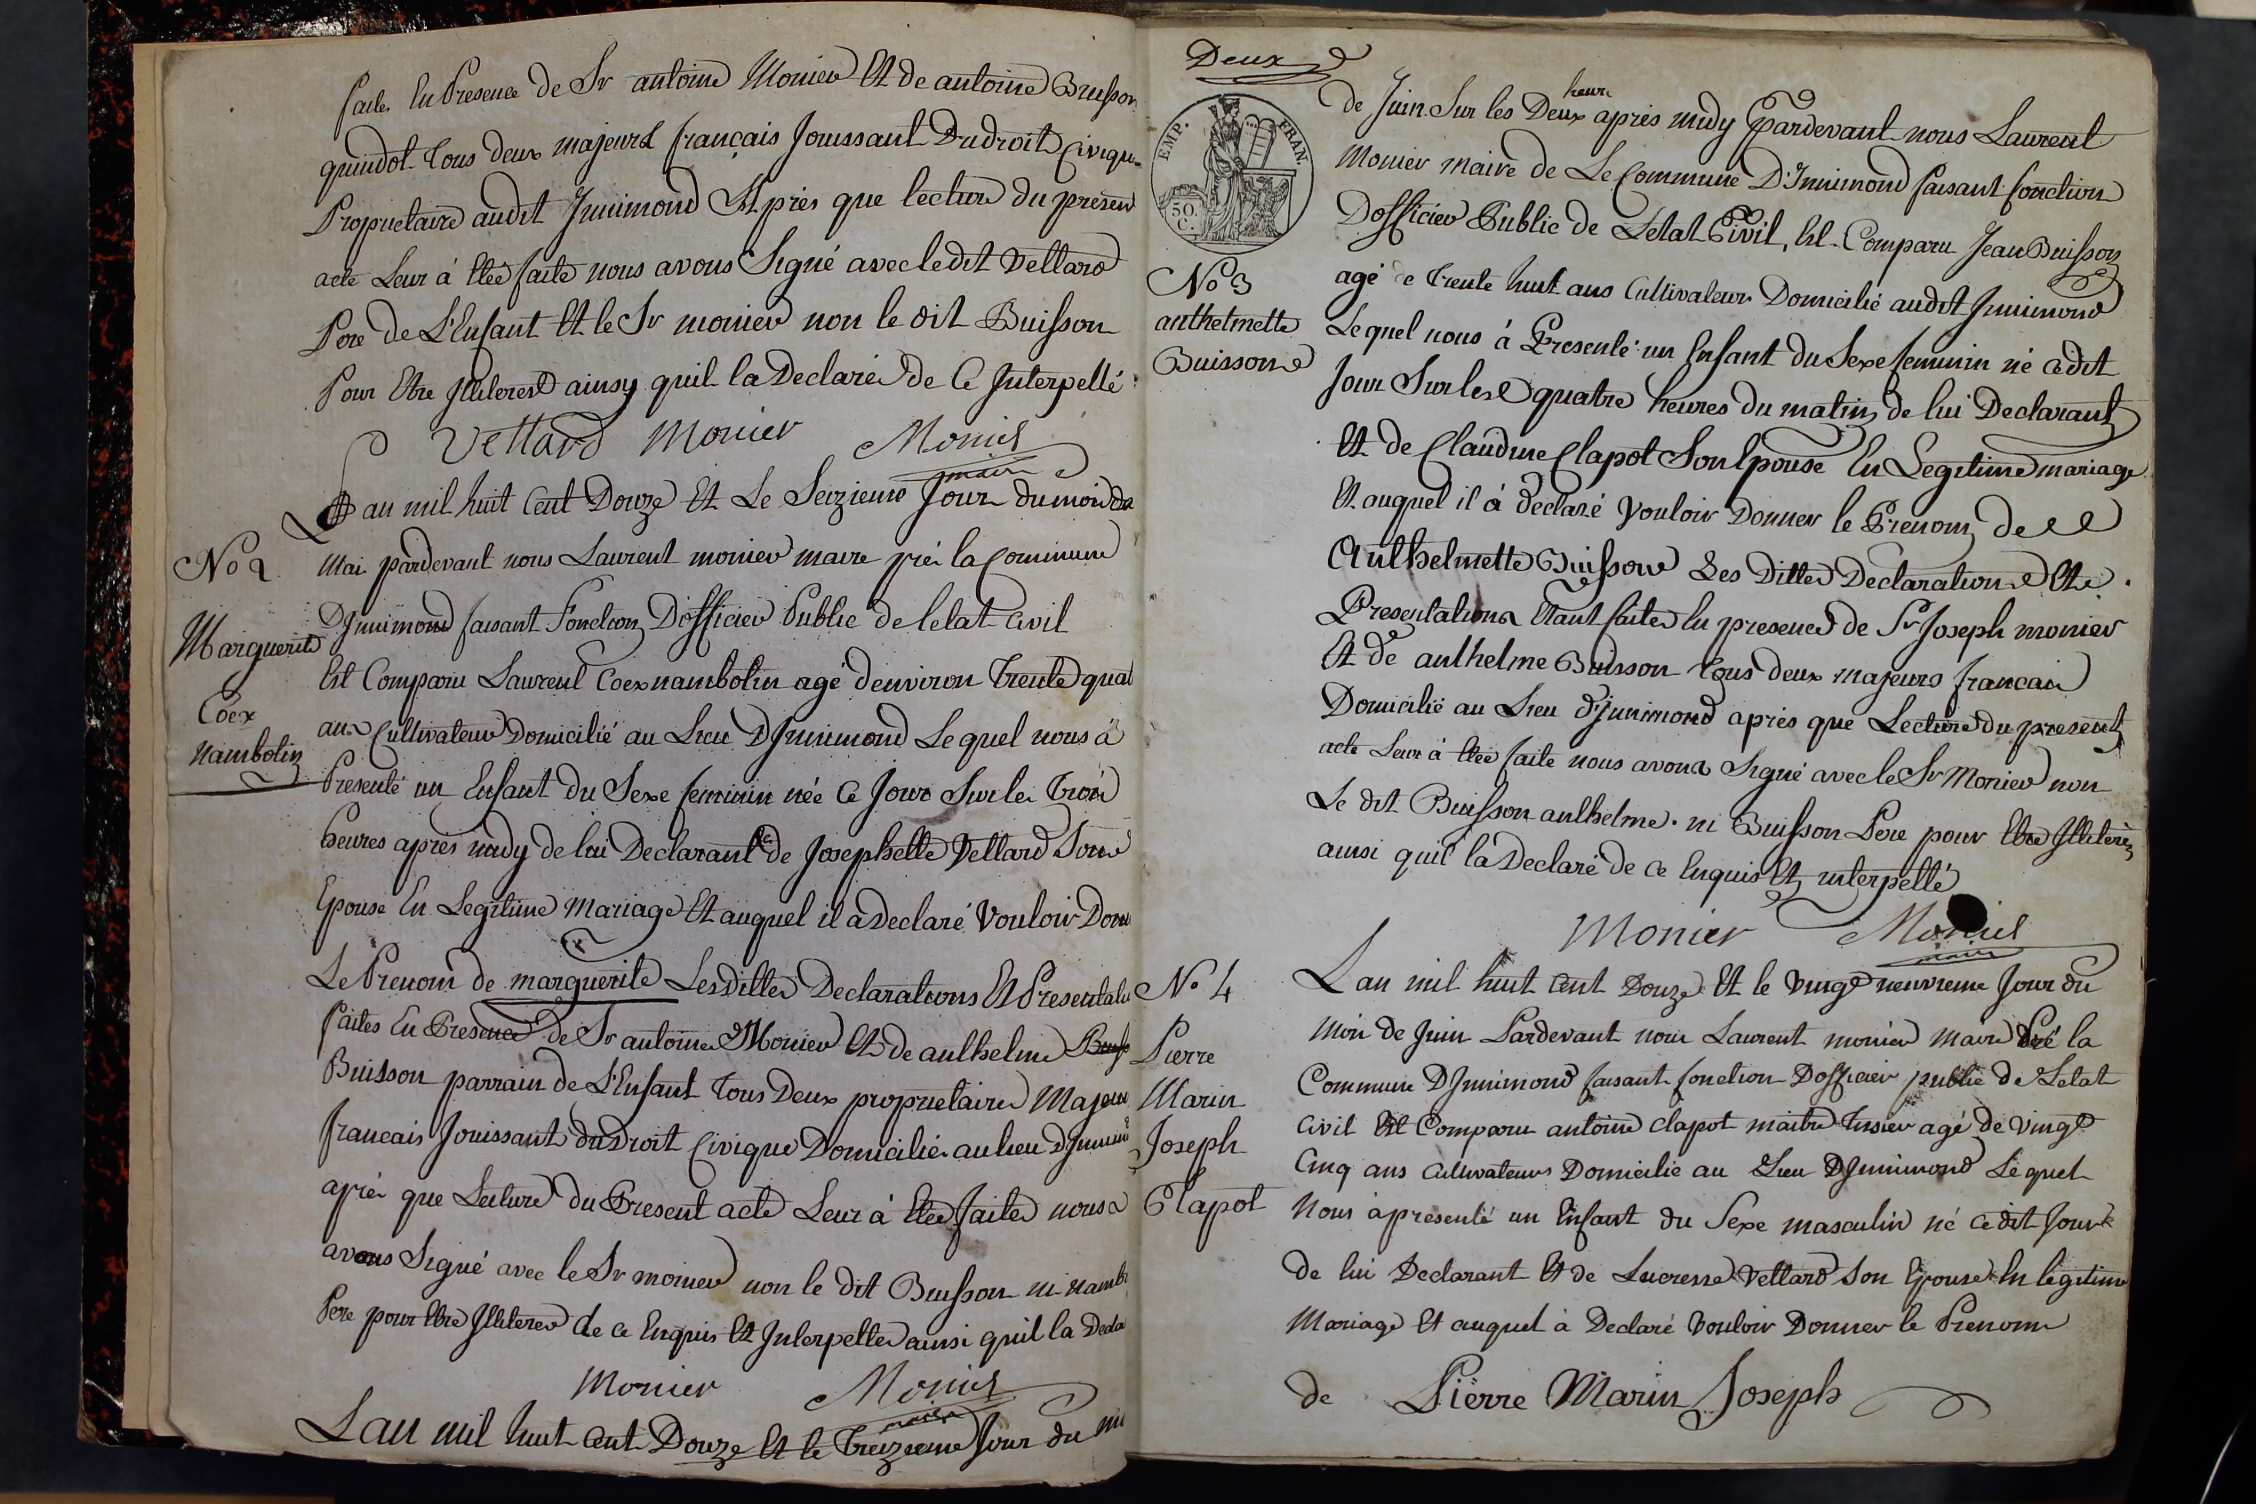 faite En Presence de Sr antoine Monier Et de antoine Buisson
quindot tous deux majeurs français Jouissant Du droit Civique
Proprietaire audit Jnnimond Et près que lecture du présent
acte Leur à Etée faite nous avons Signé avec ledit Vettard
Pere de L'Enfant Et le Sr monier non le dit Buisson
Pour Etre Jlliteres ainsy quil la Declaré de Ce Jnterpellé
Vettard Monier Monier
maire
Lan mil huit Cent Douze Et Le Seizieme Jour du mois de
No 2
Marguerite
Coex
nambotin
mai pardevant nous Laurent monier maire pré la Commune
DJnnimond faisant Fonction D'officier Public de letat Civil
Est Comparu Laurent Coexnambotin agé denviron Trente quat
ans Cultivateur Domicilié au Lieu DJnnimond Le quel nous à
Presenté un Enfant du Sexe feminin née Ce Jour Sur les Trois
heures après midy de lui Declarant Et de Josephette Vettard Son
Epouse En Legitime Mariage Et auquel il a Declaré Vouloir Donn
Le Prenom de marguerite Les Dittes Declarations Et Presentati
faites En Presence de Sr antoine Monier Et de anthelme Buiss
Buisson parrain de L'Enfant Tous Deux proprietaires Majeur
francais Jouissant du Droit Civique Domicilié au lieu DJnnimd
après que Lecture du Present acte Leur à Etée faite nous
avons Signé avec le Sr monier non le dit Buisson ni nambo
Pere pour Etre Jlliteres de ce Enquis Et Jnterpelles ainsi quil la Decla
Monier Monier
maire
Lan mil huit cent Douze Et le Treizieme Jour du m
Deux
EMP. FRAN.
50.
C.
No 3
anthelmette
Buisson
de Juin Sur les Deux heure après midy Pardevant nous Laurent
Monier maire de Le Commune D'Jnnimond faisant fonction
Dofficier Public de Letat Civil, Est Comparu Jean Buisson
agé de Trente huit ans Cultivateur Domicilié audit Jnnimond
Lequel nous à Presenté un Enfant du Sexe feminin né cedit
Jour Sur les quatre heures du matin de lui Declarant
Et de Claudine Clapot Son Epouse En Legitime mariage
Et auquel il à declaré Vouloir Donner le Prenom de
Anthelmette Buisson Les Dittes Declaration Et
Presentations Etant faites En presence de Sr Joseph monier
Et de anthelme Buisson tous deux majeurs francais
Domicilié au Lieu d'Jnnimond après que Lecture du present
acte Leur à Etée faite nous avons Signé avec le Sr Monier non
Le dit Buisson anthelme. ni Buisson Pere pour Etre Jllitérés
ainsi quil la Declaré de ce Enquis Et interpellé
Monier Monier
maire
No 4
Pierre
Marin
Joseph
Clapot
Lan mil huit cent Douze Et le vingt neuvieme Jour du
mois de Juin Pardevant nous Laurent monier maire Pré la
Commune DJnnimond faisant fonction Dofficier public de Letat
Civil Est Comparu antoine clapot maitre tissier agé de vingt
Cinq ans Cultivateurs Domicilié au Lieu DJnnimond Lequel
Nous à presenté un Enfant du Sexe masculin né cedit Jour
de lui Declarant Et de Lucresse Vettard Son Epouse En legitime
Mariage Et auquel à Declaré vouloir Donner le Prenom
de Pierre Marin Joseph